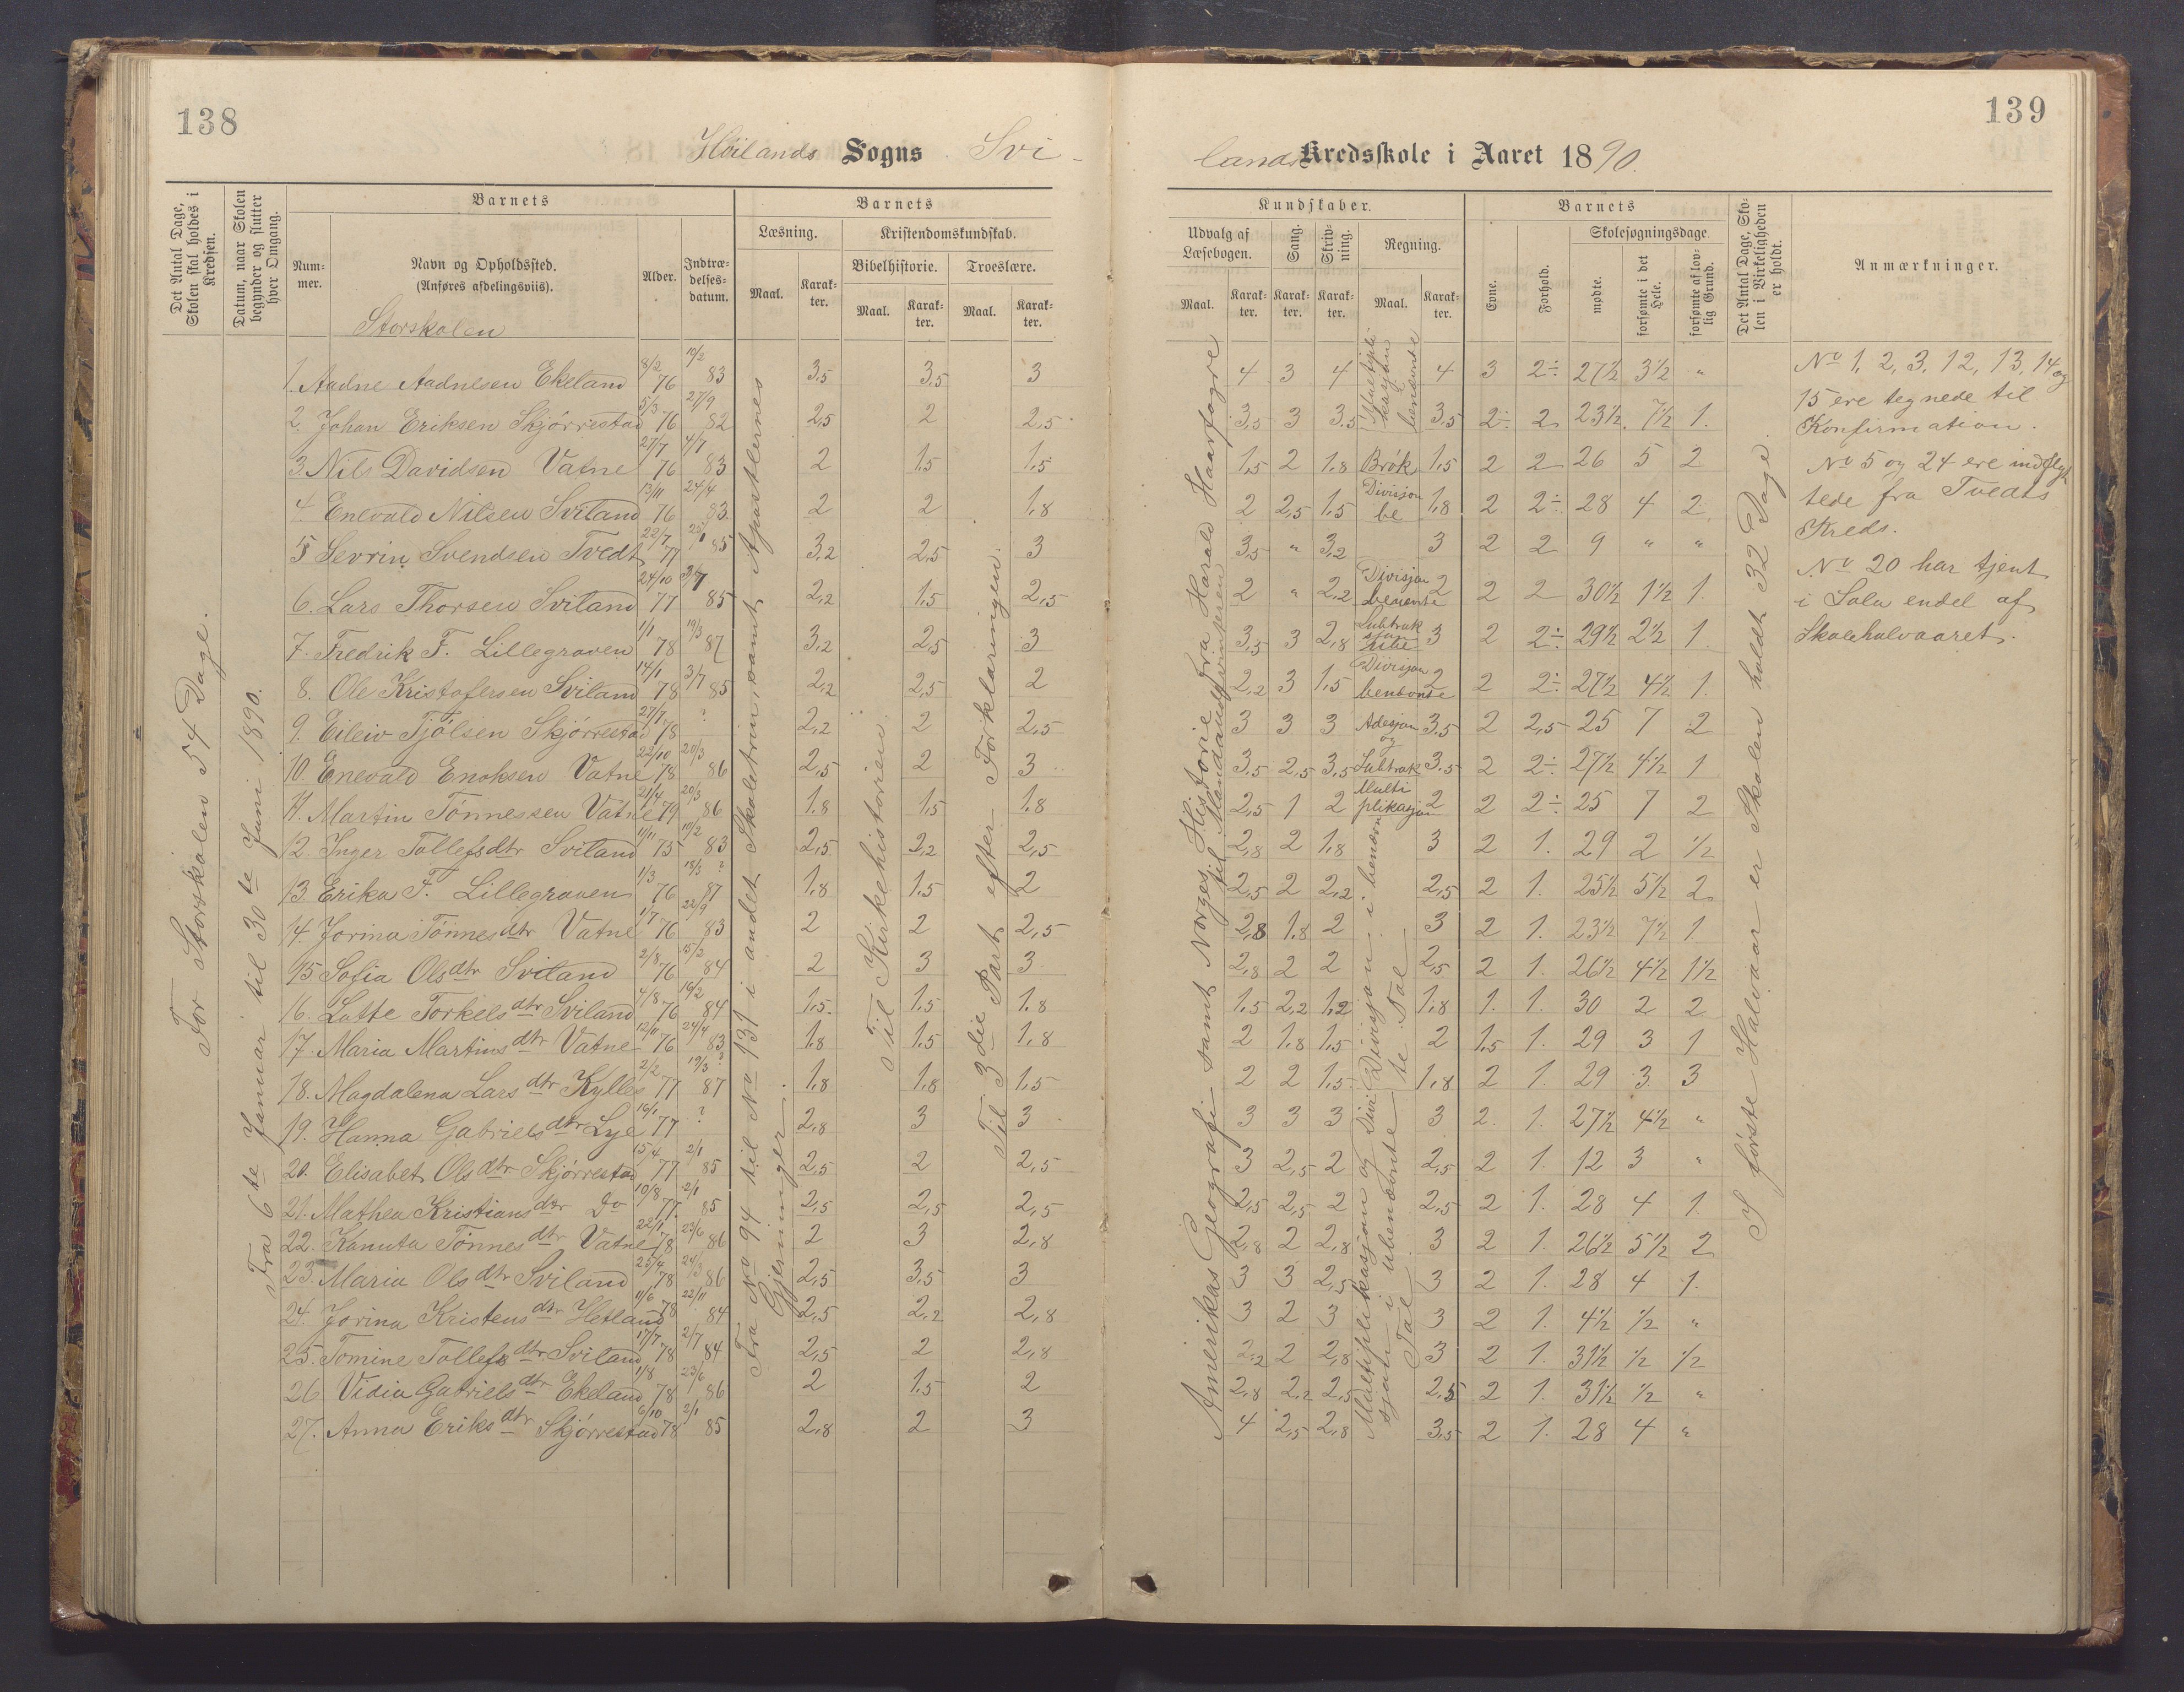 138
Höilands Sogns Svi-
Det Antal Dage, Skolen skal holdes i Kredsen.
Datum, naar Skolen begynder og slutter hver Omgang.
Barnets
Nummer.
Navn og Opholdssted.
(Anføres afdelingsviis).
Alder.
Indtrædelsesdatum.
Barnets
Læsning.
Maal.
Karakter.
Kristendomskundskab.
Bibelhistorie.
Maal.
Karakter.
Troeslære.
Maal.
Karakter.
Storskolen
For Storskolen 54 Dage.
Fra 6te Januar til 30te Juni 1890.
Fra No 94 til No 131 i andet Skoletrin, samt Apostlernes Gjerninger.
Til Kirkehistorien
Til 3die Part efter Forklaringen.
1. Aadne Aadnesen Ekeland 8/2 76 10/2 83 3,5 3,5 3
2. Johan Eriksen Skjørrestad 5/3 76 27/9 82 2,5 2 2,5
3. Nils Davidsen Vatne 27/7 76 4/7 83 2 1,5 1,5
4. Enevald Nilsen Sviland 13/11 76 24/4 83 2 2 1,8
5 Sevrin Svendsen Tvedt 22/7 77 85 3,2 2,5 3
6. Lars Thorsen Sviland 24/10 77 3/7 85 2,2 1,5 2,5
7. Fredrik F. Lillegraven 1/1 78 19/3 87 3,2 2,5 3
8. Ole Kristofersen Sviland 14/1 78 3/7 85 2,2 2,5 2
9. Eileiv Tjølsen Skjørrestad 27/7 78 ? 2,2 2 2,5
10. Enevald Enoksen Vatne 22/10 78 20/3 86 2,5 2 3
11. Martin Tønnessen Vatne 21/4 79 20/3 86 1,8 1,5 1,8
12. Inger Tollefsdtr Sviland 11/11 75 10/2 83 2,5 2,2 2,5
13. Erika F. Lillegraven 1/3 76 18/3 ? 87 1,8 1,5 2
14. Jorina Tønnesdtr Vatne 1/7 76 22/9 83 2 2 2,5
15. Sofia Olsdtr Sviland 2/8 76 15/2 84 2 3 3
16. Lotte Torkelsdtr Sviland 4/8 76 16/2 84 1,5 1,5 1,8
17. Maria Martinsdtr Vatne 12/11 76 24/4 83 1,8 1,5 1,8
18. Magdalena Larsdtr Kylles 2/2 77 19/3 ? 87 1,8 1,8 1,5
19. Hanna Gabrielsdtr Lye 16/1 77 ? 2,8 3 3
20. Elisabet Olsdtr Skjørrestad 15/4 77 2/1 85 2,5 2 2,5
21. Mathea Kristiansdtr Do 10/8 77 2/1 85 2,5 2,5 2,5
22. Kanuta Tønnesdtr Vatne 22/1 78 23/6 86 2 3 2,8
23. Maria Olsdtr Sviland 25/4 78 24/3 86 2,5 3,5 3
24. Jorina Kristensdtr Hetland 11/6 78 22/11 84 2,5 2,2 2,8
25. Tomine Tollefsdtr Sviland 17/7 78 2/7 84 2,5 2 2,8
26. Vidia Gabrielsdtr Ekeland 1/8 78 23/6 86 2 1,5 2
27. Anna Eriksdtr Skjørrestad 6/10 78 2/1 85 2,8 2 3
139
lands Kredsskole i Aaret 1890.
Kundskaber.
Udvalg af Læsebogen.
Maal.
Karakter.
Sang.
Karakter.
Skrivning.
Karakter.
Regning.
Maal.
Karakter.
Barnets
Evne.
Forhold.
Skolesøgningsdage.
mødte.
forsømte i det Hele.
forsømte af lovlig Grund.
Det Antal Dage, Skolen i Virkeligheden er holdt.
Anmærkninger.
Amerikas Geografi samt Norges Historie fra Harald Haarfagre
Multiplikasjon og Divisjon i ubenævnte Tal
I første Halvaar er Skolen holdt 32 Dage.
4 3 4 4 3 2÷ 27½ 3½ "
3,5 3 3.5 3,5 2÷ 2 23½ 7½ 1.
1,5 2 1.8 Brøk 1,5 2 2 26 5 2
2 2,5 1,5 Divisjon be 1,8 2 2÷ 28 4 2
3,5 " 3,2 3 2 2 9 " "
2 " 2,2 Divisjon 2 2 2 30½ 1½ 1.
3,5 3 2,8 3 2 2÷ 29½ 2½ 1
2,2 3 1,5 Divisjon 2 2 2÷ 27½ 4½ 1.
3 3 3 Adesjon og 3.5 2 2,5 25 7 2
3,5 2,5 3,5 Subtrak 3.5 2 2÷ 27½ 4½ 1
2,5 1 2 Multiplikasjon 2 2 2÷ 25 7 2
2,8 2 1,8 3 2 1. 29 2 ½
2,5 2 2,2 2,5 2 1. 25½ 5½ 2
2,8 1.8 2 3 2 1. 23½ 7½ 1
2,8 2 2 2,5 2 1. 26½ 4½ 1½
1.5 2,2 1,2 1,8 1. 1. 30 2 2
2 1.8 1,5 2 1,5 1. 29 3 1
2 2 1,5 1,8 2 1. 29 3 3
3 3 3 3 2. 1. 27½ 4½ "
3 2,5 2 2,5 2 1. 12 3 "
2,5 2,5 2 2,5 2 1. 28 4 1.
2,8 2 2,8 3 2 1. 26½ 5½ 2
3 3 2,5 3 2 1. 28 4 1.
3 2 3 3 2 1. 4½ ½ "
2,2 2 2,8 3 2 1. 31½ ½ ½
2,8 2,2 2,5 2,5 2 1. 31½ ½ "
4 2,5 2,8 3,5 2 1. 28 4 "
No 1, 2, 3, 12, 13, 14 og
15 ere tegnede til
Konfirmation.
No 5 og 24 ere indflyt
tede fra Tvedts
Kreds.
No 20 har tjent
i Sola endel af
Skolehalvaaret.